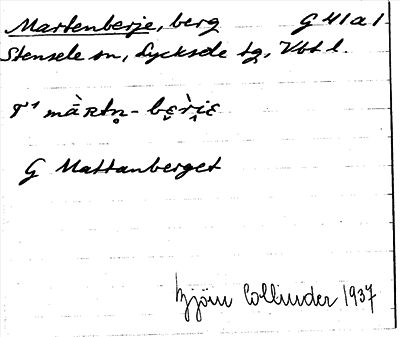 Martenberje, berg G 41 a 1
Stensele sn, Lycksele tg, Vbt l.
màʀtn̥ - bɛ̀rjɛ
G Mattanberget
Björn Collinder 1937